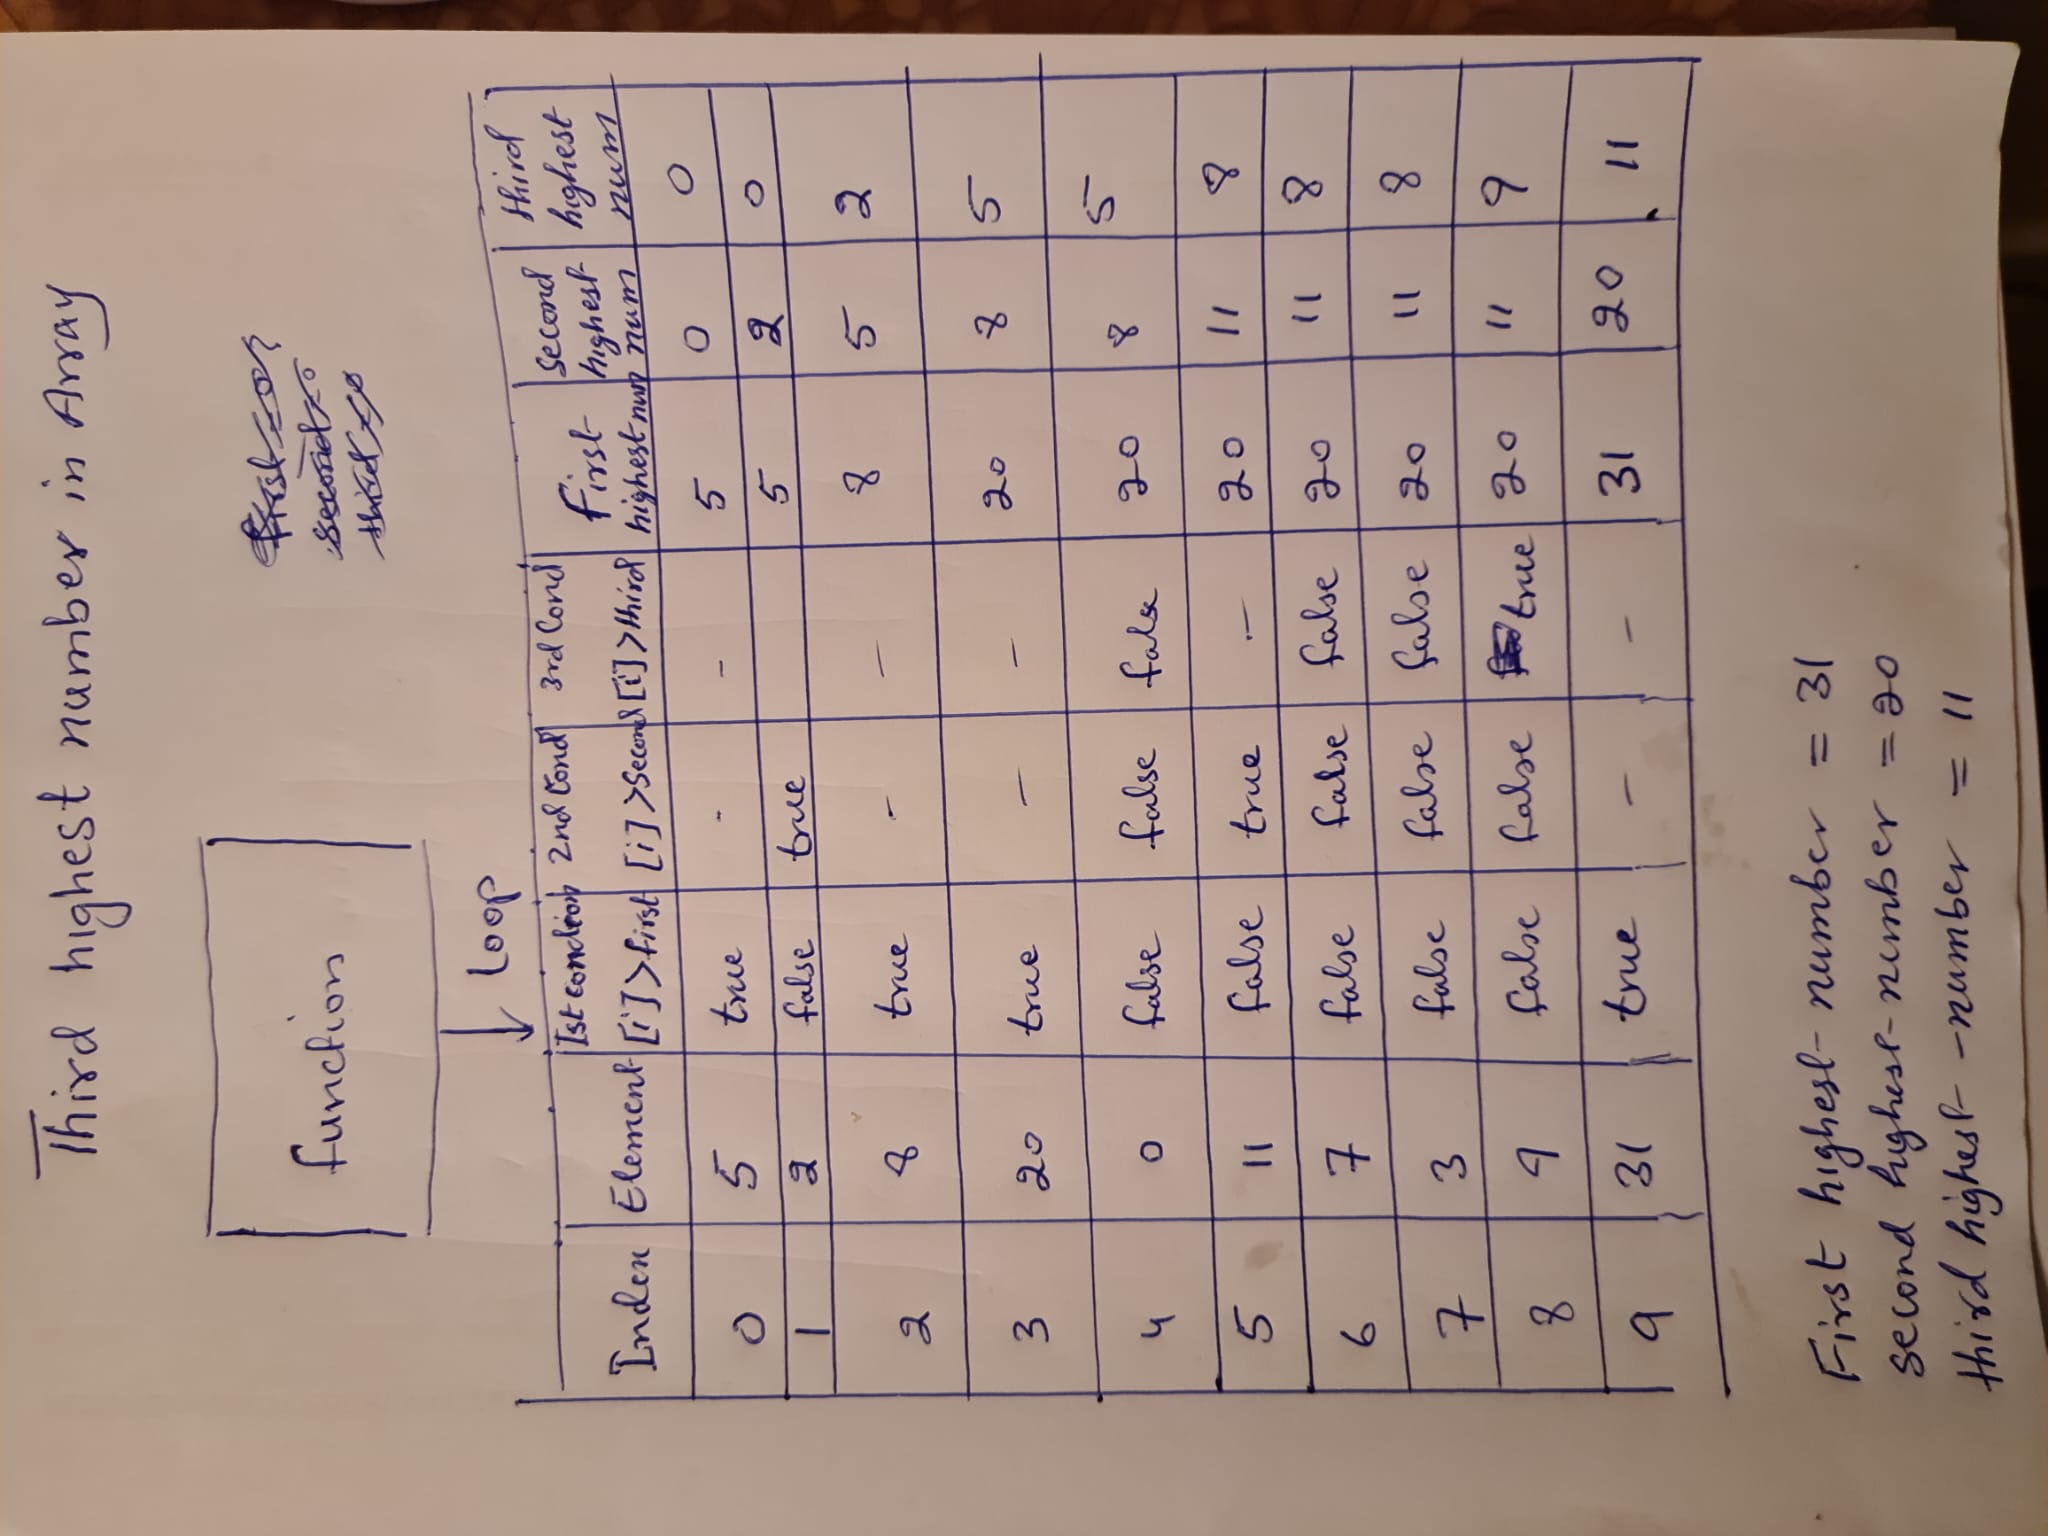 Third highest number in Array
function
first = 0
second = 0
third = 0
Loop
Index Element Ist condtion [i] > first 2nd Cond [i] > Second 3rd Cond [i] > third First highest num Second highest num third highest num
0 5 true - - 5 0 0
1 2 false true 5 2 0
2 8 true - - 8 5 2
3 20 true - - 20 8 5
4 0 false false false 20 8 5
5 11 false true - 20 11 8
6 7 false false false 20 11 8
7 3 false false false 20 11 8
8 9 false false true 20 11 9
9 31 true - - 31 20 11
First highest number = 31
second highest number = 20
third highest - number = 11